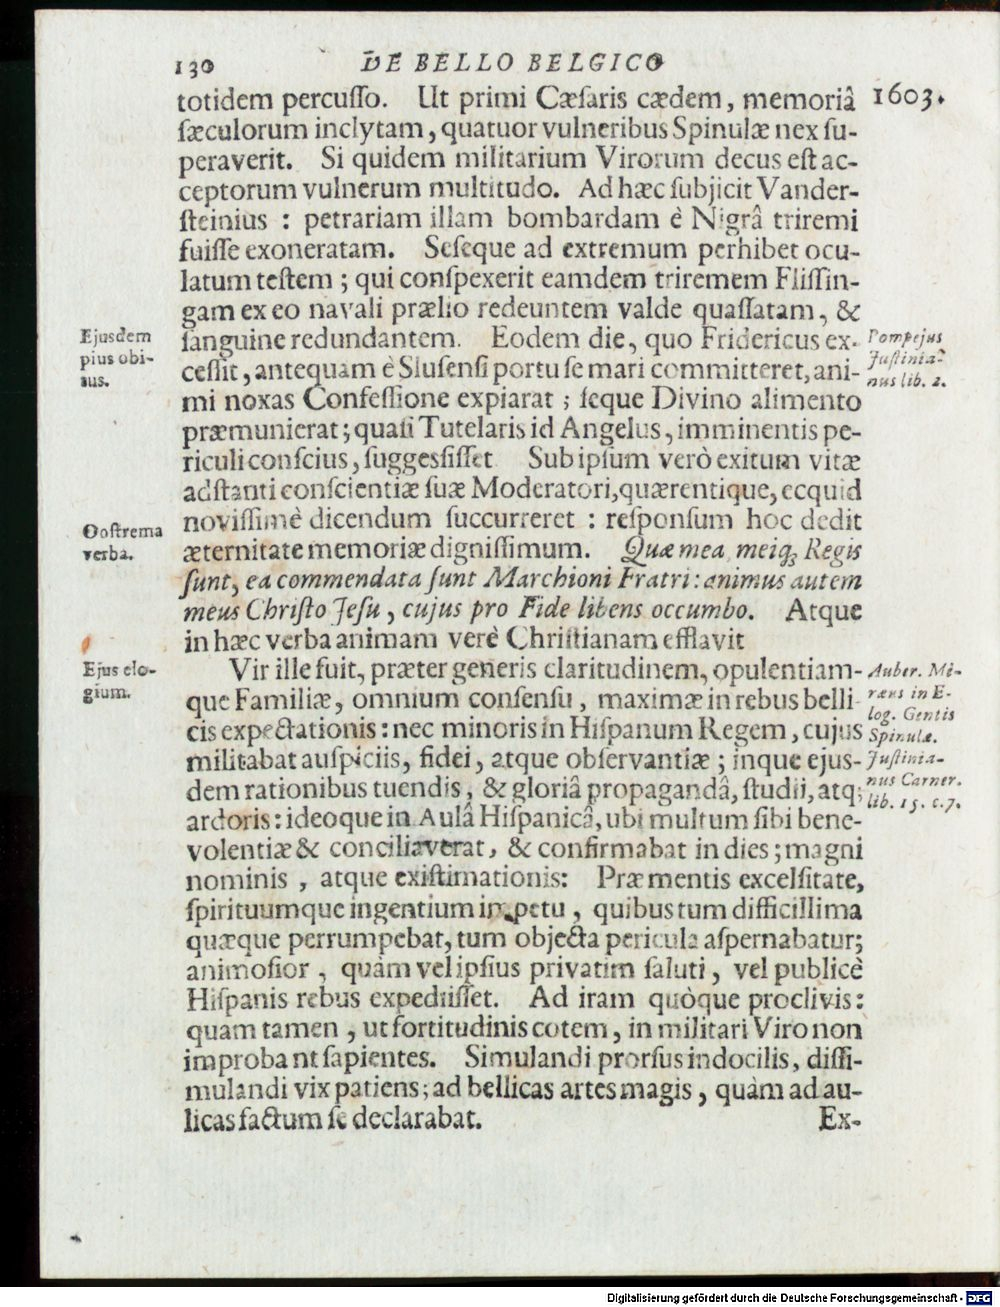 130 DE BELLO BELGICO
totidem percuſſo. Ut primi Cæſaris cædem, memoriâ 1603.
ſæculorum inclytam, quatuor vulneribus Spinulæ nex ſu-
peraverit. Si quidem militarium Virorum decus eſt ac-
ceptorum vulnerum multitudo. Ad hæc ſubjicit Vander-
ſteinius : petrariam illam bombardam è Nigrâ triremi
fuiſſe exoneratam. Seſeque ad extremum perhibet ocu-
latum teſtem ; qui conſpexerit eamdem triremem Fliſſin-
gam ex eo navali prælio redeuntem valde quaſſatam, &
ſanguine redundantem. Eodem die, quo Fridericus ex-
ceſſit, antequam è Sluſenſi portu ſe mari committeret, ani-
mi noxas Confeſſione expiarat ; ſeque Divino alimento
præmunierat; quaſi Tutelaris id Angelus, imminentis pe-
riculi conſcius, ſuggeſſiſſet Sub ipſum verò exitum vitæ
adſtanti conſcientiæ ſuæ Moderatori, quærentique, ecquid
noviſſimè dicendum ſuccurreret : reſponſum hoc dedit
æternitate memoriæ digniſſimum. Quæ mea meiq; Regis
ſunt, ea commendata ſunt Marchioni Fratri: animus autem
meus Chriſto Jeſu, cujus pro Fide libens occumbo. Atque
in hæc verba animam verè Chriſtianam efflavit
Vir ille fuit, præter generis claritudinem, opulentiam-
que Familiæ, omnium conſenſu, maximæ in rebus belli-
cis expectationis: nec minoris in Hiſpanum Regem, cujus
militabat auſpiciis, fidei, atque obſervantiæ ; inque ejus-
dem rationibus tuendis, & gloriâ propagandâ, ſtudii, atq;
ardoris: ideoque in Aulâ Hiſpanicâ, ubi multum ſibi bene-
volentiæ & conciliaverat, & confirmabat in dies; magni
nominis , atque exiſtimationis: Præ mentis excelſitate,
ſpirituumque ingentium impetu , quibus tum difficillima
quæque perrumpebat, tum objecta pericula aſpernabatur;
animoſior , quàm vel ipſius privatim ſaluti, vel publicè
Hiſpanis rebus expediiſſet. Ad iram quòque proclivis:
quam tamen , ut fortitudinis cotem, in militari Viro non
improbant ſapientes. Simulandi prorſus indocilis, diſſi-
mulandi vix patiens; ad bellicas artes magis, quàm ad au-
licas factum ſe declarabat. Ex-
Ejusdem
pius obi-
tus.
Poſtrema
verba.
Ejus elo-
gium.
Pompejus
Juſtinia-
nus lib. 2.
Auber. Mi-
ræus in E-
log. Gentis
Spinulæ.
Juſtinia-
nus Carner.
lib. 15. c. 7.
Digitalisierung gefördert durch die Deutsche Forschungsgemeinschaft - DFG